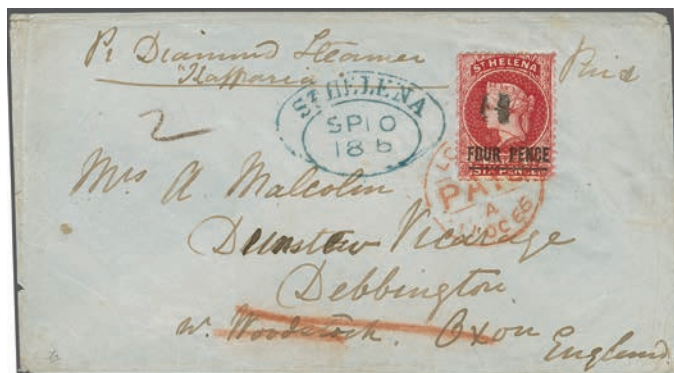 Pr Diamond Steamer
Kaffraria
Paid
2
ST HELENA
SP10
186
ST HELENA
FOUR PENCE
SIX PENCE
PAID
A
OC 66
Mrs A Malcolm
Dunstew Vicarage
Debbington
nr. Woodstock. Oxon
England.